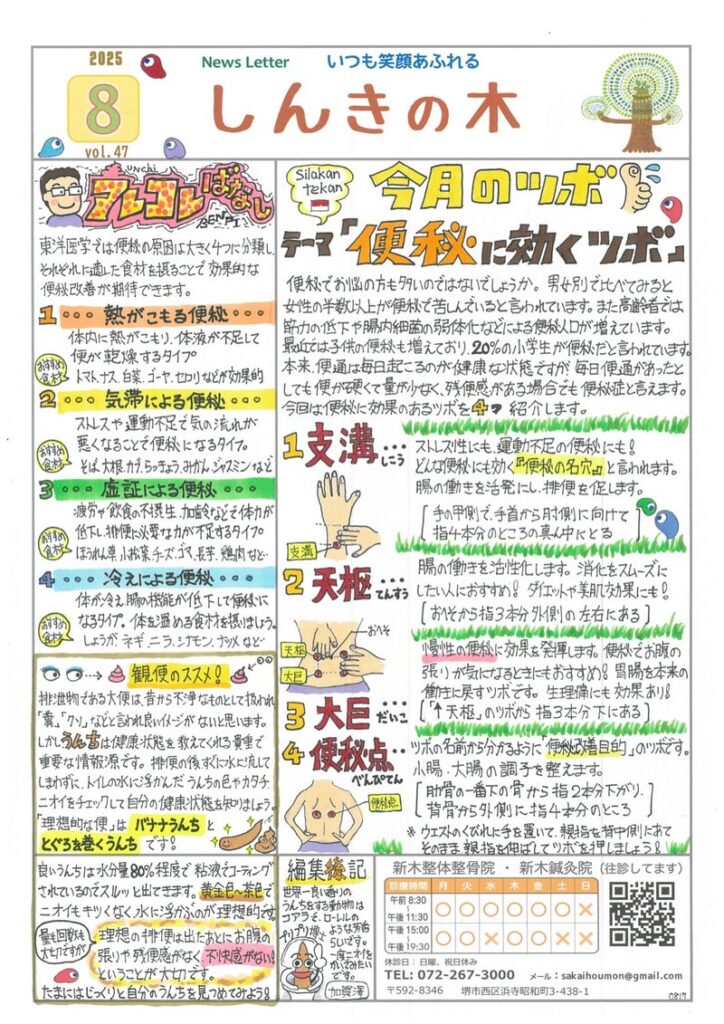 2025
8
vol.47
News Letter
いつも笑顔あふれる
しんきの木
unchi
アレコレばなし
BENPI
東洋医学では便秘の原因は大きく4つに分類し、
それぞれに適した食材を摂ることで効果的な
便秘改善が期待できます。
1・・・熱がこもる便秘・・・
体内に熱がこもり、体液が不足して
便が乾燥するタイプ
おすすめ食材
トマト、ナス、白菜、ゴーヤ、セロリなどが効果的
2・・・気滞による便秘・・・
ストレスや運動不足で気の流れが
悪くなることで便秘になるタイプ。
おすすめ食材
そば、大根、カブ、らっきょう、みかん、ジャスミンなど
3・・・虚証による便秘・・・
疲労や飲食の不摂生、加齢などで体力が
低下し、排便に必要な力が不足するタイプ
おすすめ食材
ほうれん草、小松菜、チーズ、ゴマ、長芋、鶏肉など…
4・・・冷えによる便秘・・・
体が冷え腸の機能が低下して便秘に
なるタイプ。体を温める食材を摂りましょう。
おすすめ食材
しょうが、ネギ、ニラ、シナモン、ナッツなど…
観便のススメ!
排泄物である大便は、昔から不浄なものとして扱われ
「糞」、「クソ」などと言われ良いイメージがないと思います。
しかしうんちは健康状態を教えてくれる貴重で
重要な情報源です。排便の後すぐに水に流して
しまわずに、トイレの水に浮かんだうんちの色やカタチ、
ニオイをチェックして自分の健康状態を知りましょう。
「理想的な便」はバナナうんちと
とぐろを巻くうんちです!
良いうんちは水分量80%程度で粘液でコーティング
されているのでスルッと出てきます。黄金色〜茶色で
ニオイもキツくなく、水に浮かぶのが理想的です。
量も回数も大切ですが
理想の排便は出たあとにお腹の
張りや残便感がなく不快感がない!
ということが大切です。
たまにはじっくりと自分のうんちを見つめてみよう!
Silakan tekan
今月のツボ
テーマ「便秘に効くツボ」
便秘でお悩の方も多いのではないでしょうか。男女別で比べてみると
女性の半数以上が便秘で苦しんでいると言われています。また高齢者では
筋力の低下や腸内細菌の弱体化などによる便秘人口が増えています。
最近では子供の便秘も増えており、20%の小学生が便秘だと言われています。
本来、便通は毎日起こるのが健康な状態ですが、毎日便通があったと
しても便が硬くて量が少なく、残便感がある場合でも便秘症と言えます。
今回は便秘に効果のあるツボを4つ紹介します。
1 支溝・・・
しこう
ストレス性にも、運動不足の便秘にも!
どんな便秘にも効く『便秘の名穴』と言われます。
腸の働きを活発にし、排便を促します。
[手の甲側で、手首から肘側に向けて
指4本分のところの真ん中にとる]
支溝
2 天枢・・・
てんすう
腸の働きを活性化します。消化をスムーズに
したい人におすすめ!ダイエットや美肌効果にも!
[おへそから指3本分外側の左右にある]
おへそ
天枢
大巨
3 大巨
だいこ
慢性の便秘に効果を発揮します。便秘でお腹の
張りが気になるときにもおすすめ!胃腸を本来の
働きに戻すツボです。生理痛にも効果あり!
[「↑天枢」のツボから指3本分下にある]
4 便秘点・・・
べんぴてん
ツボの名前から分かるように「便秘改善目的」のツボです。
小腸、大腸の調子を整えます。
[肋骨の一番下の骨から指2本分下がり、
背骨から外側に指4本分のところ]
便秘点
※ウエストのくびれに手を置いて、親指を背中側にあて
そのまま親指を伸ばしてツボを押しましょう!
編集後記
世界一良い香りの
うんちをする動物は
コアラで、ローレルの
ような芳香
らしいです。
一度ニオイを
かいでみたい
です。
加賀澤
新木整体整骨院・新木鍼灸院(往診してます)
診療時間 月 火 水 木 金 土 日
午前 8:30
午後 11:30
○ ○ ○ ○ ○ ○ ×
午後 15:00
午後 19:30
○ ○ × ○ ○ × ×
休診日:日曜、祝日休み
TEL: 072-267-3000 メール:sakaihoumon@gmail.com
〒592-8346 堺市西区浜寺昭和町3-438-1